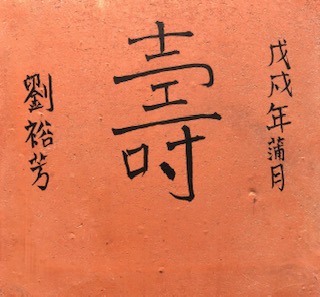 戊戌年蒲月
壽
劉裕芳